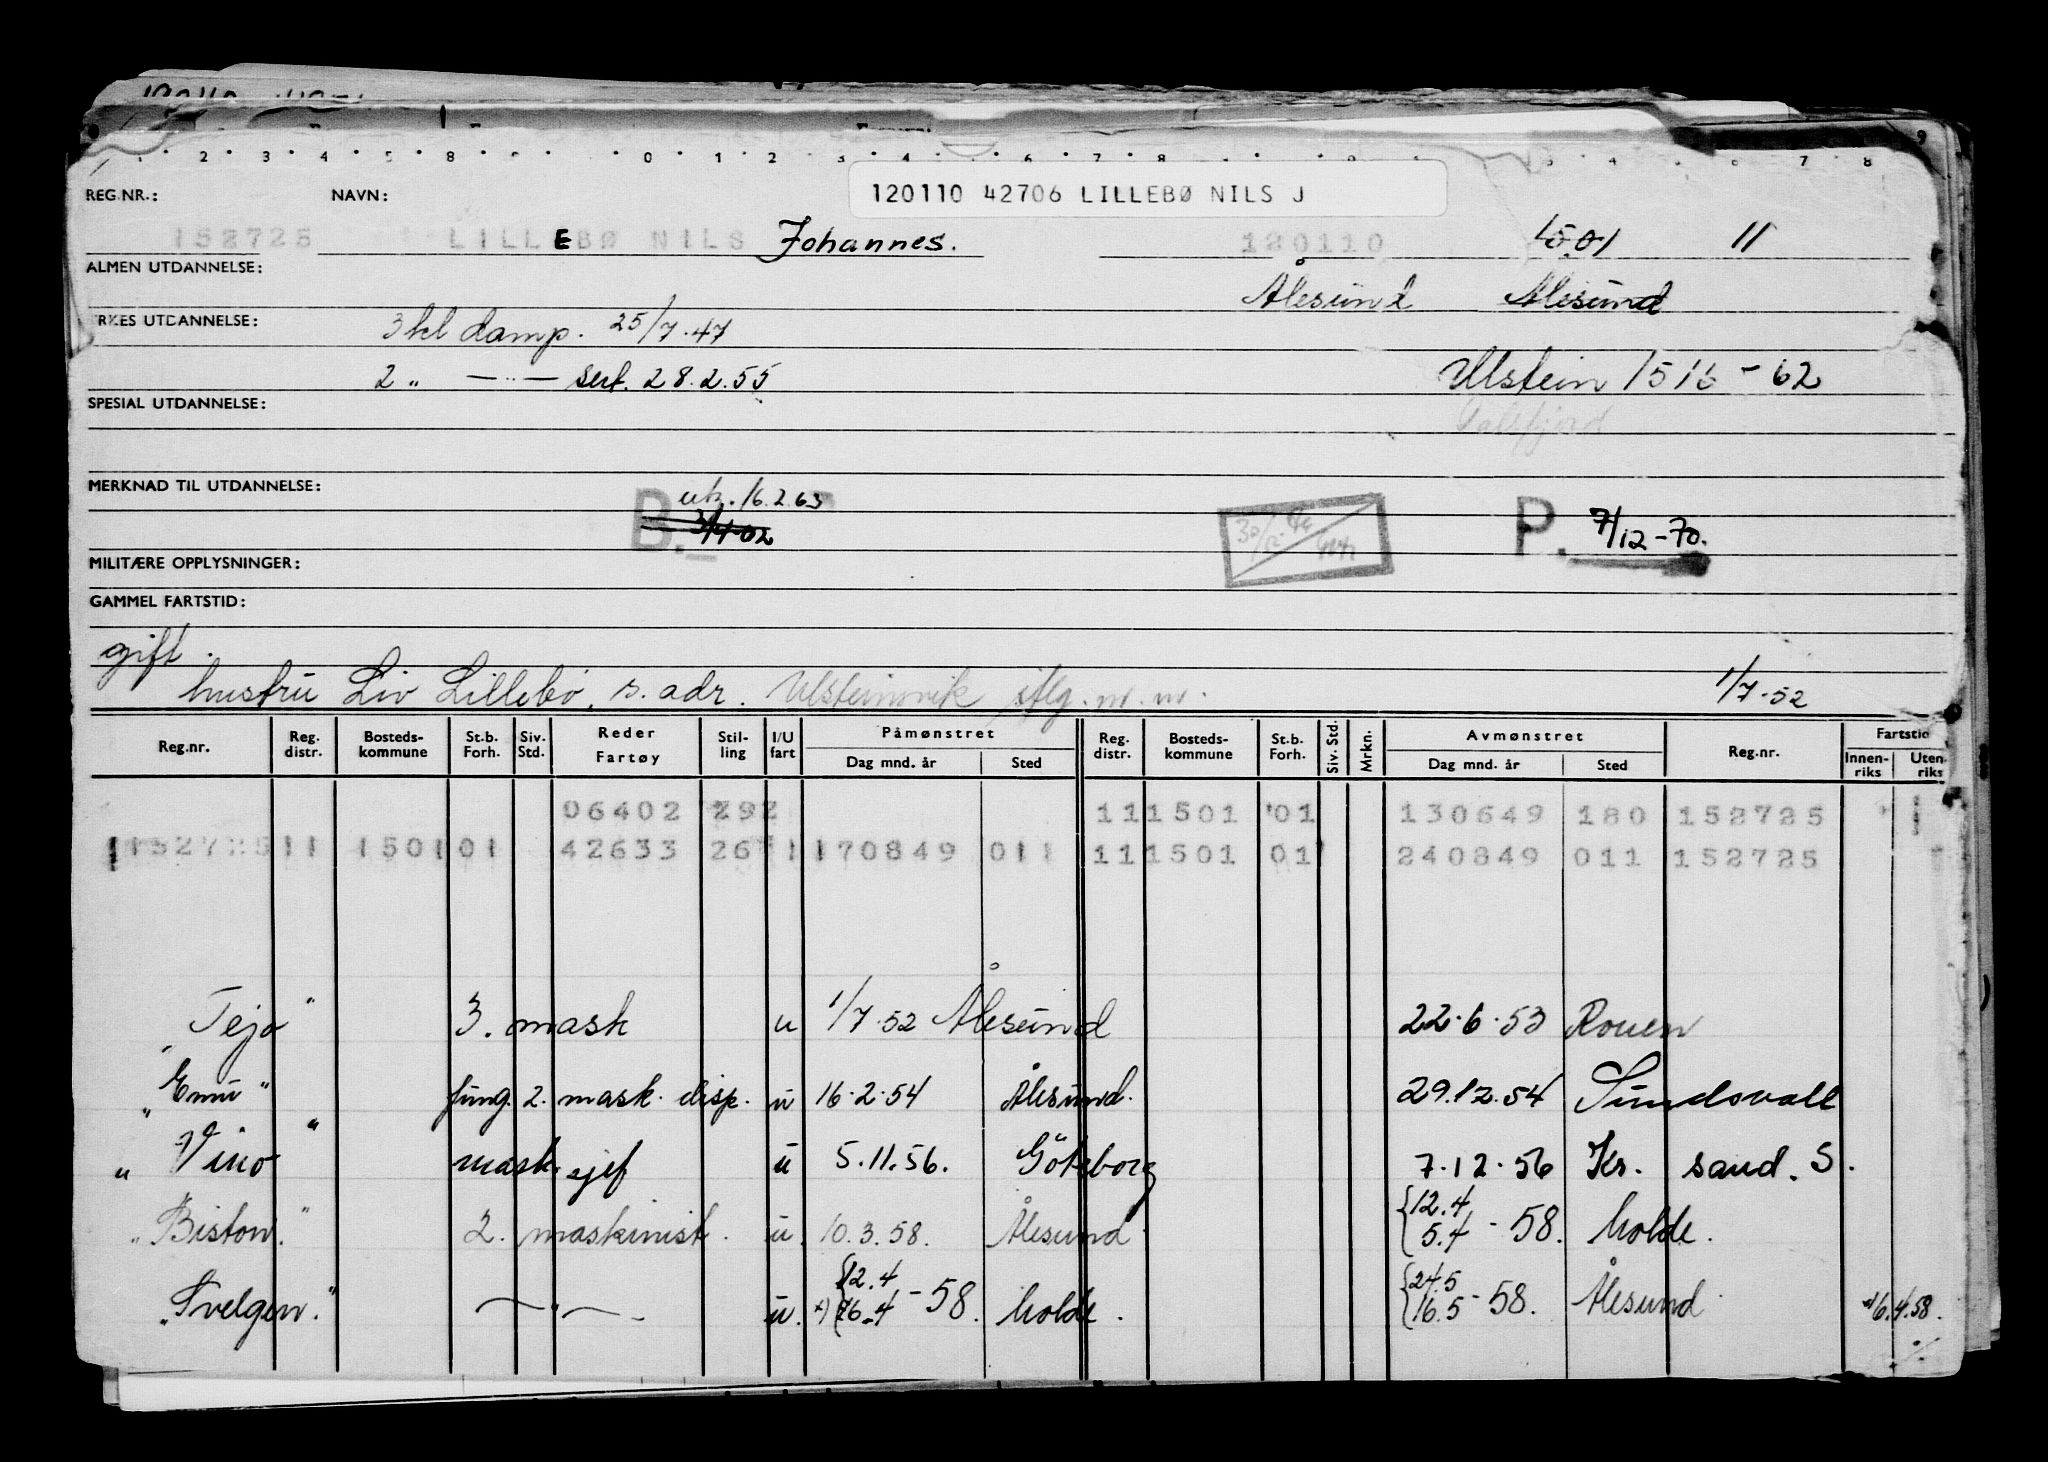 120110 42706 LILLEBØ NILS J
REG.NR.: NAVN:
152725 LILLEBØ NILS Johannes. 120110 1501 11
ALMEN UTDANNELSE: Ålesund Ålesund
YRKES UTDANNELSE: 3 kl damp. 25/7.47
2 " — " — sert. 28.2.55 Ulstein 1516 - 62
SPESIAL UTDANNELSE:
MERKNAD TIL UTDANNELSE: utg. 16.2.63
B. P. 7/12-70.
MILITÆRE OPPLYSNINGER:
GAMMEL FARTSTID:
gift.
hustru Liv Lillebø, s. adr. Ulsteinvik iflg. m. m. 1/7.52
Reg.nr. Reg. distr. Bosteds-kommune St.b. Forh. Siv. Std. Reder Fartøy Stil-ling I/U fart Påmønstret Dag mnd. år Sted Reg. distr. Bosteds-kommune St.b. Forh. Siv. Std. Mrkn. Avmønstret Dag mnd. år Sted Reg.nr. Fartstid Innen-riks Uten-riks
06402 292 11 1501 01 130649 180 152725
152725 11 1501 01 42633 26 1 170849 011 11 1501 01 240849 011 152725
"Tejo" 3. mask u 1/7.52 Ålesund 22.6.53 Rouen
"Emu" fung. 2. mask. disp. u 16.2.54 Ålesund. 29.12.54 Sundsvall
"Vino" mask.sjef u 5.11.56. Göteborg 7.12.56 Kr. sand. S.
"Biston." 2. maskinist. u. 10.3.58. Ålesund {12.4 5.4 - 58. Molde.
"Svelgen." — " — u. x) {12.4 16.4 - 58. Molde. {24.5 16.5 - 58. Ålesund x) 16.4.58.